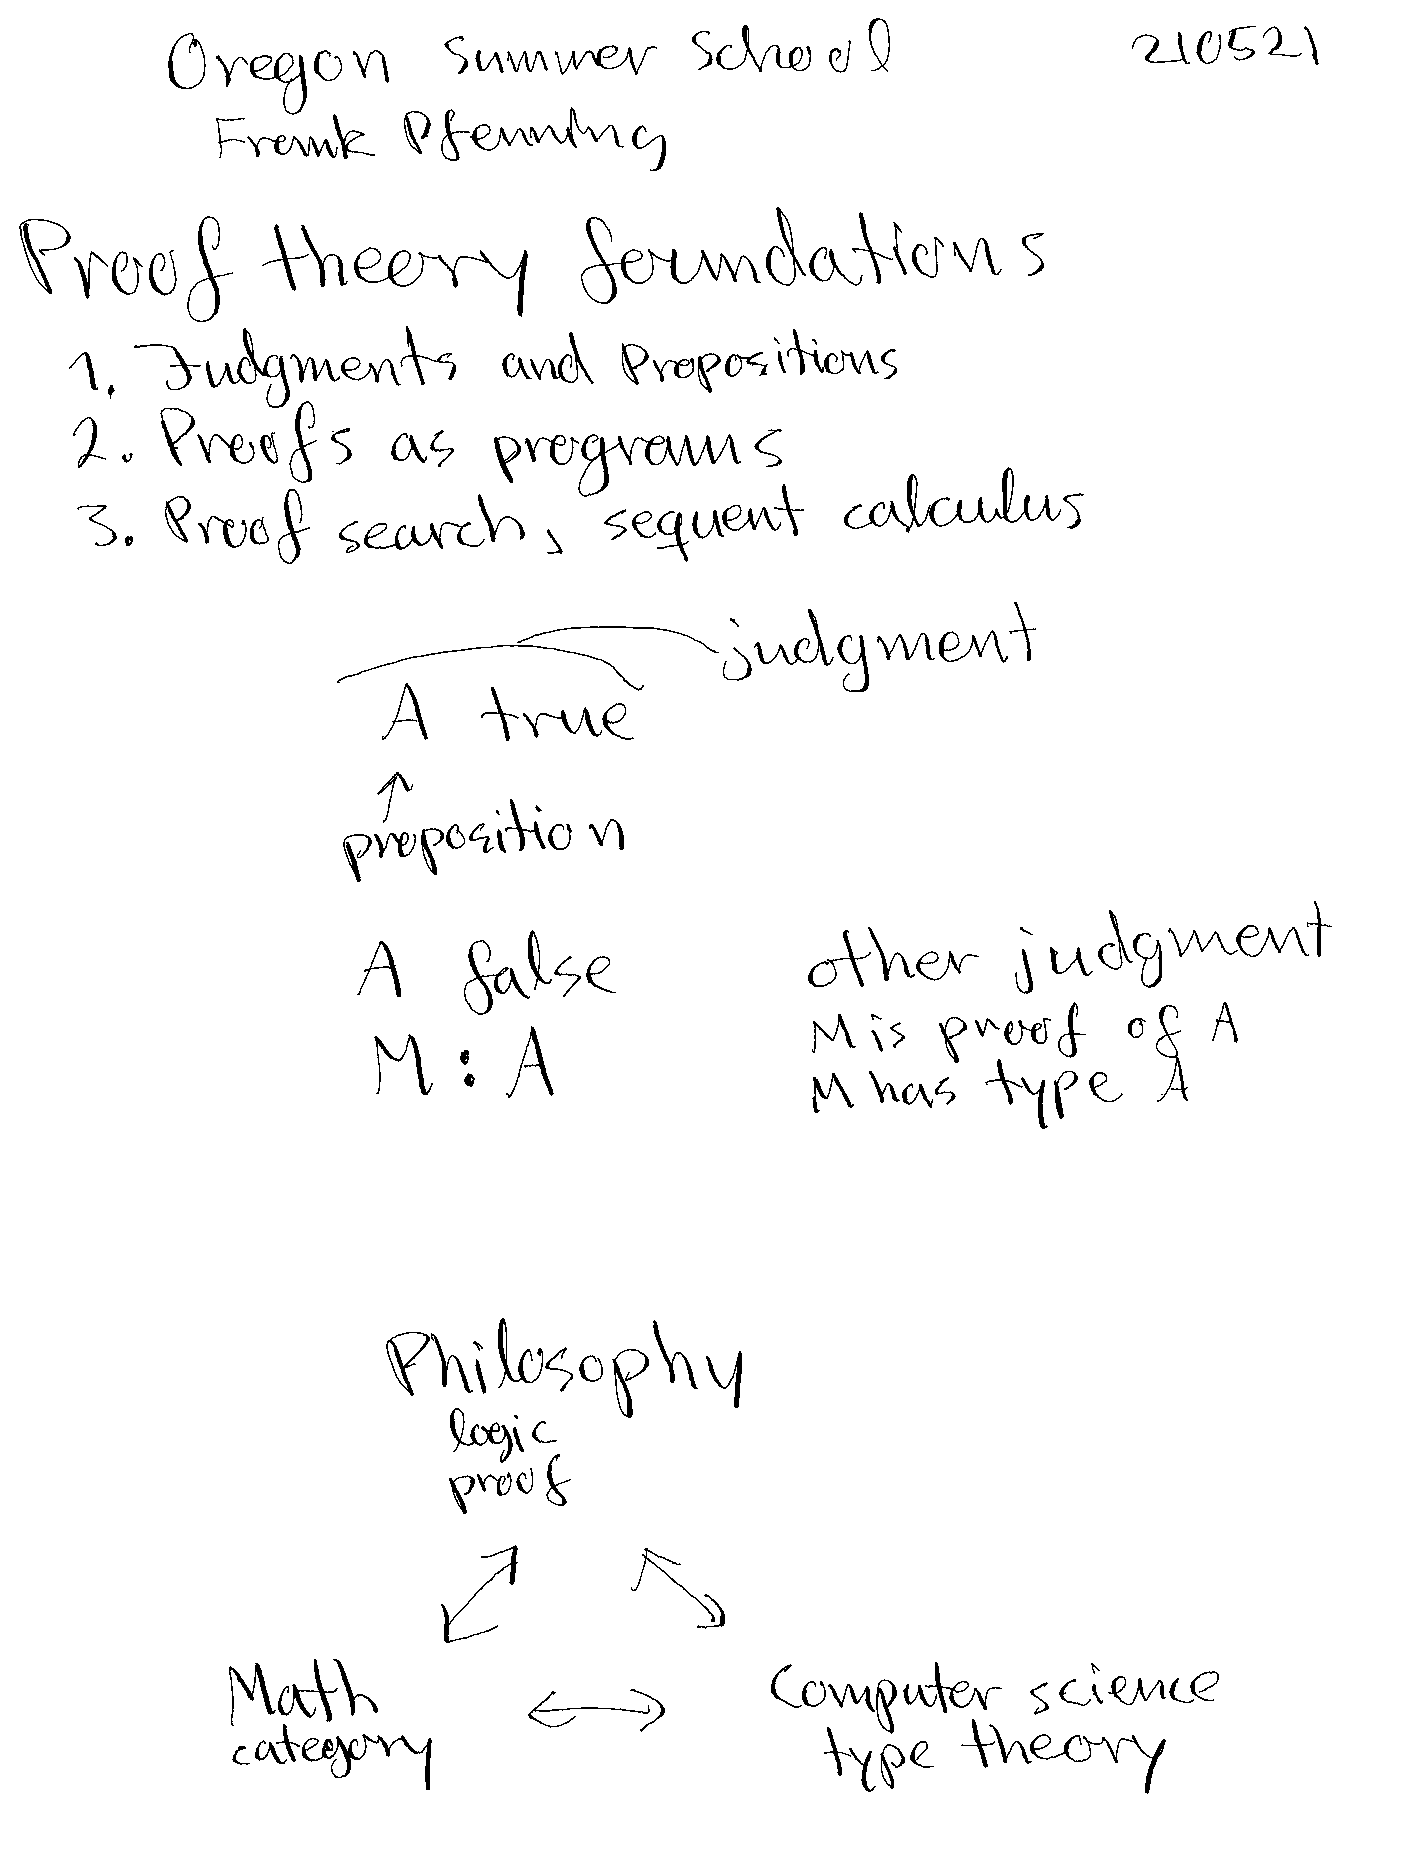 Oregon Summer School 210521
Frank Pfenning
Proof theory foundations
1. Judgments and Propositions
2. Proofs as programs
3. Proof search, sequent calculus
judgment
A true
↑
proposition
A false other judgment
M : A M is proof of A
M has type A
Philosophy
logic
proof
Math ↔ Computer science
category type theory